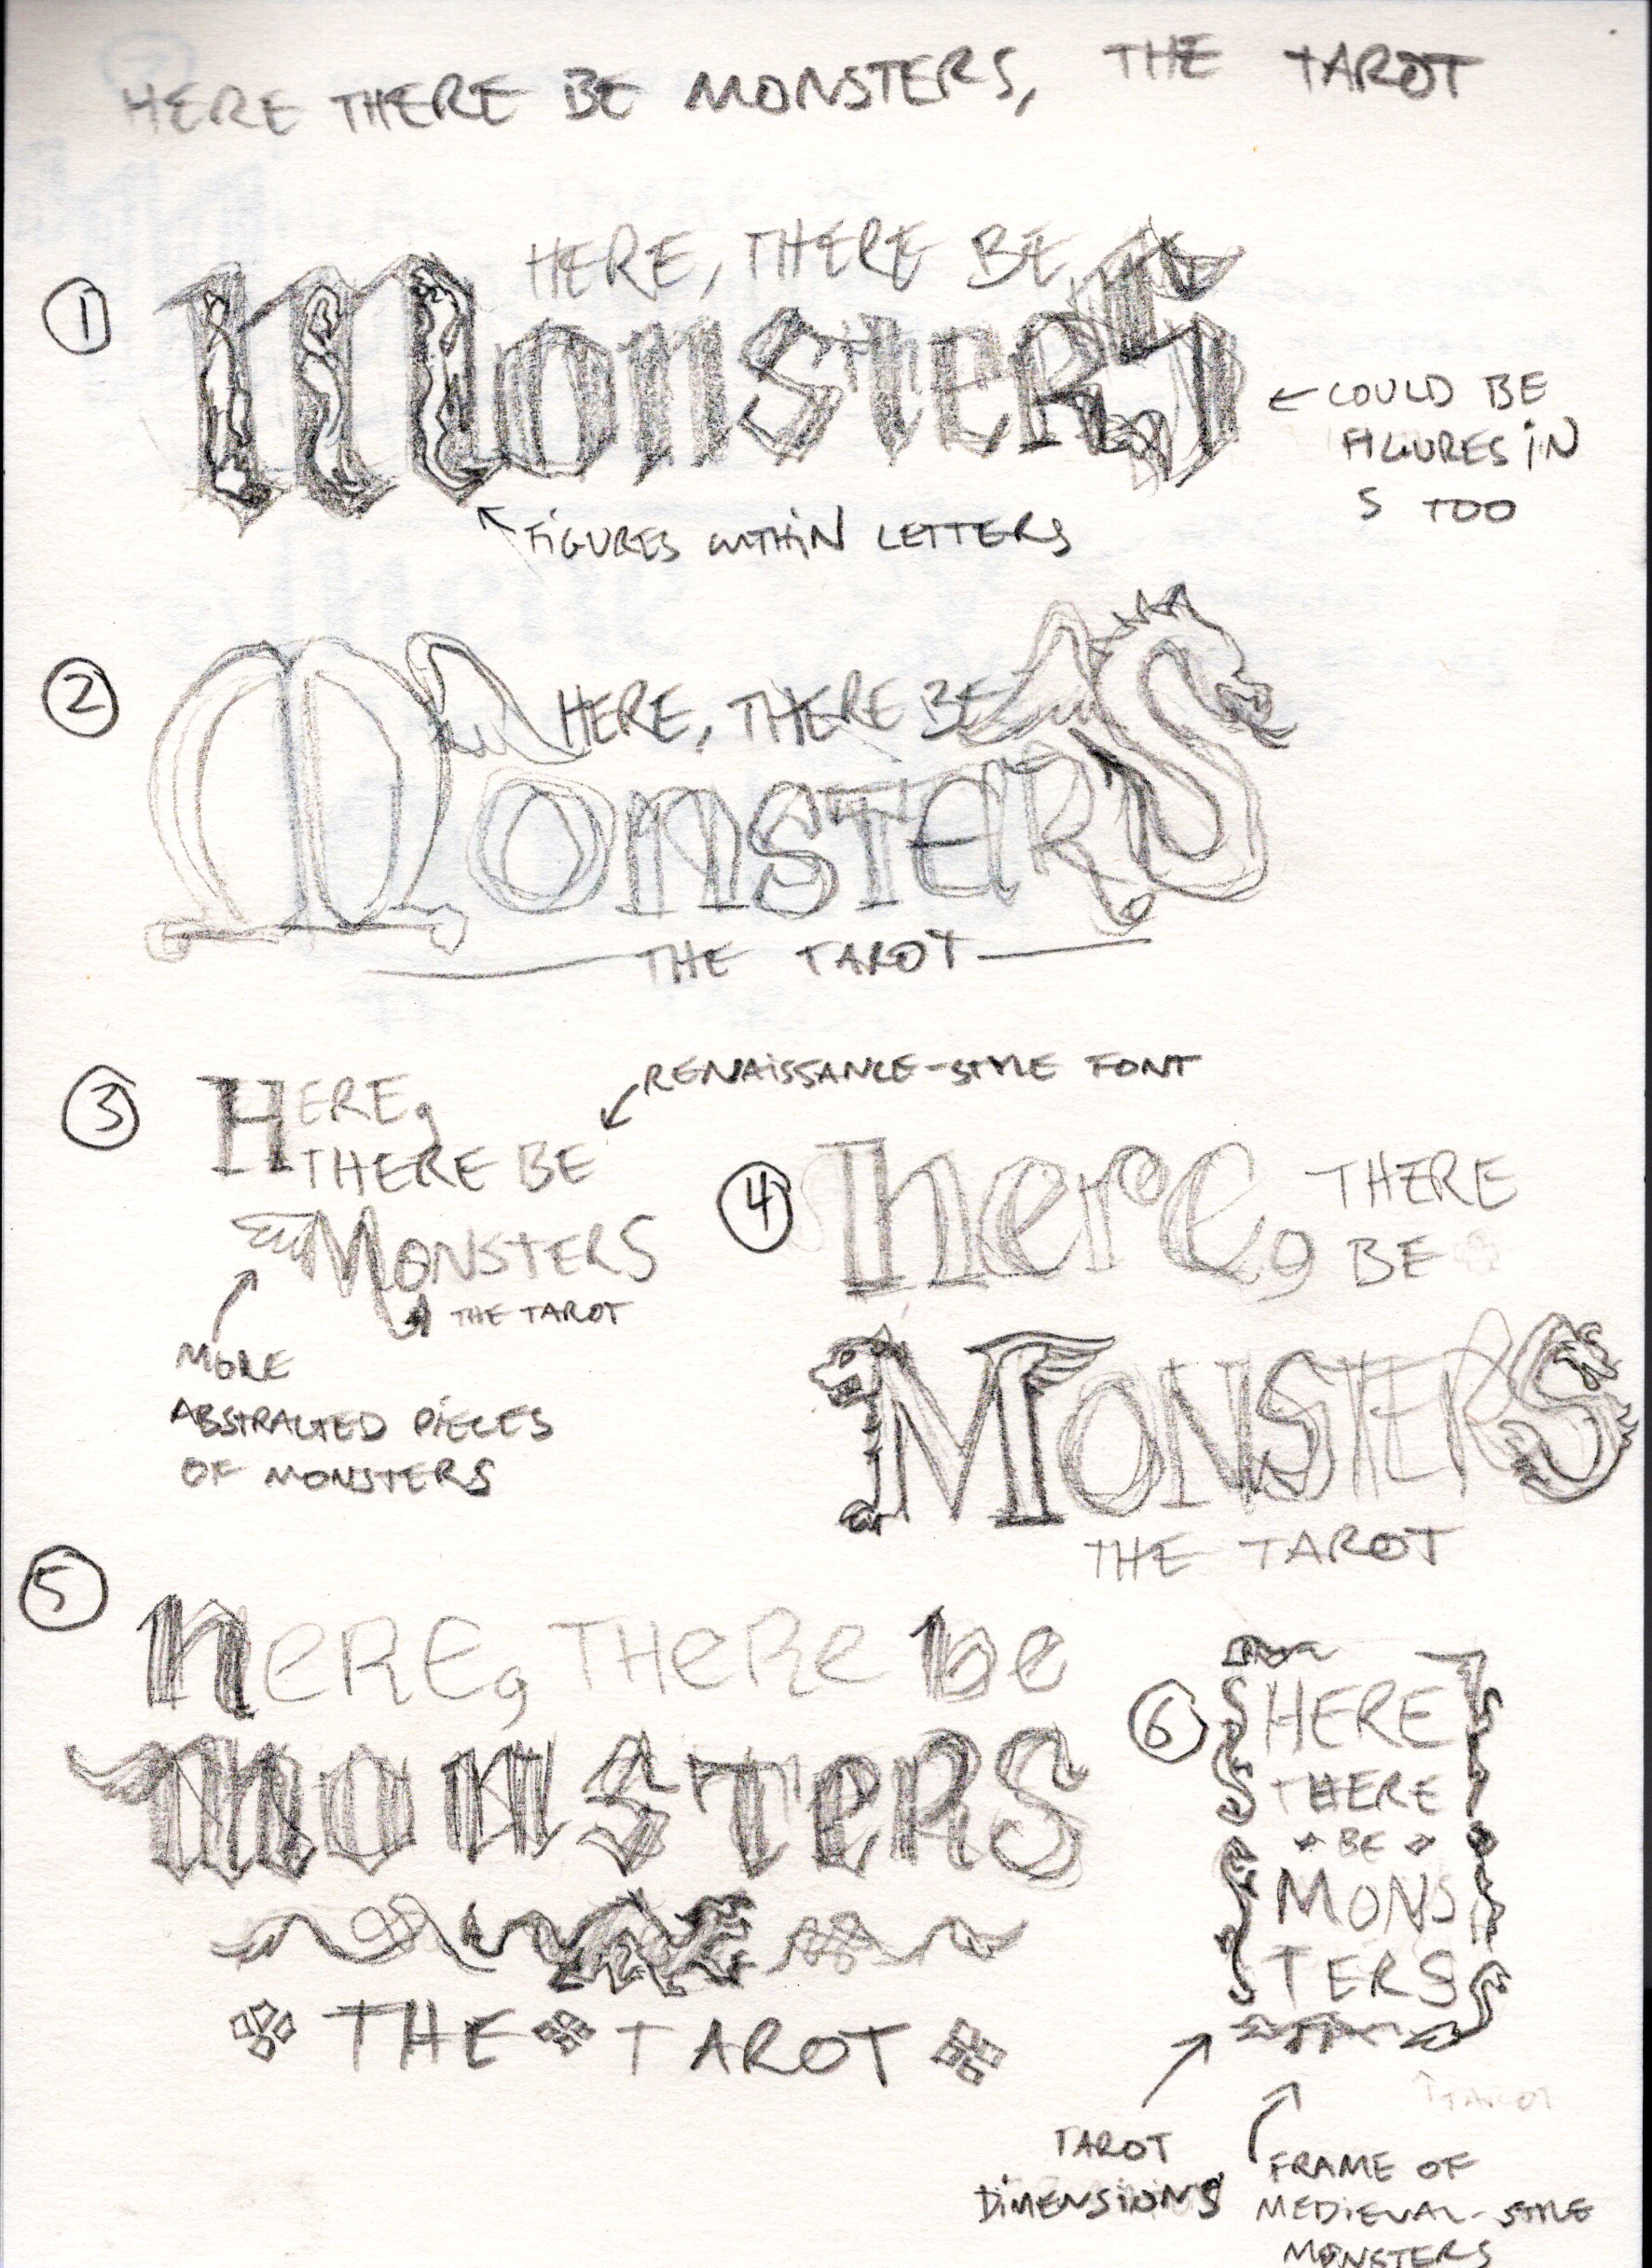 HERE THERE BE MONSTERS, THE TAROT
1
HERE, THERE BE
MONSTERS
← COULD BE
FIGURES IN
S TOO
FIGURES WITHIN LETTERS
2
HERE, THERE BE
MONSTERS
THE TAROT
3
HERE,
THERE BE
MONSTERS
THE TAROT
RENAISSANCE-STYLE FONT
MORE
ABSTRACTED PIECES
OF MONSTERS
4
here, THERE
BE
MONSTERS
THE TAROT
5
heRE, THeRe be
monsTeRS
THE TAROT
6
HERE
THERE
BE
MONS
TERS
TAROT
TAROT
DIMENSIONS
FRAME OF
MEDIEVAL-STYLE
MONSTERS